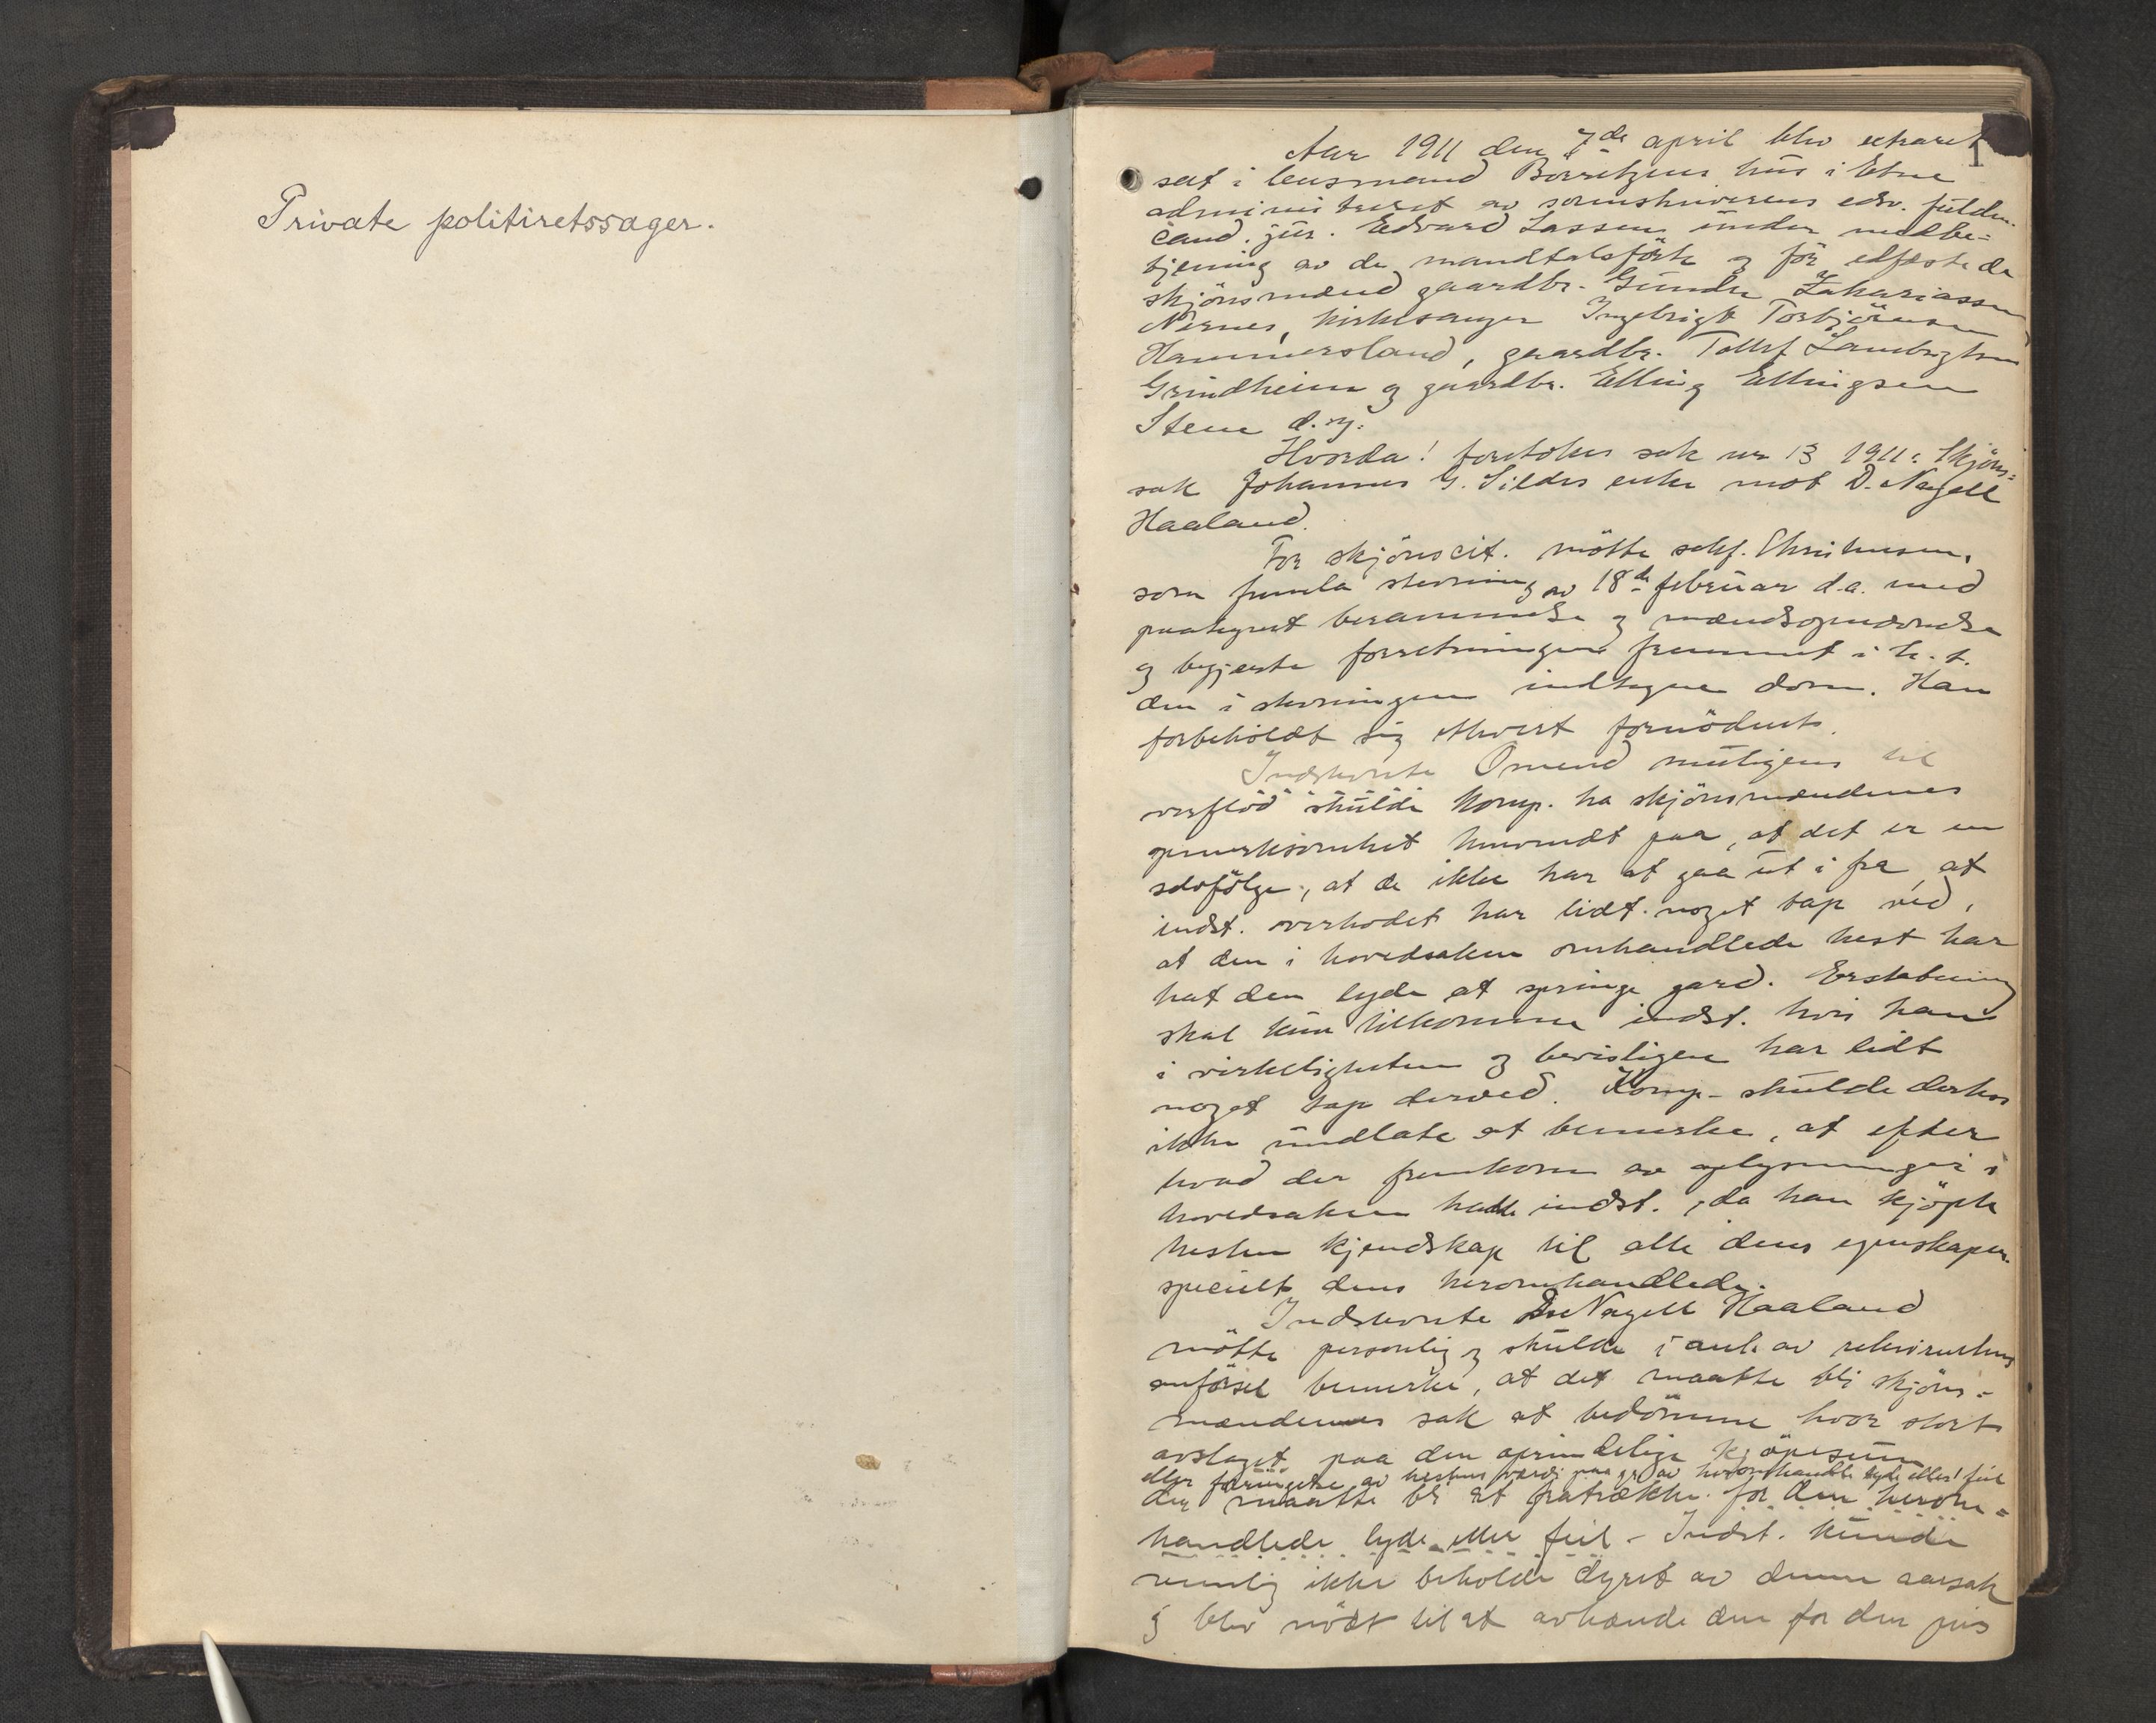 Private politiretssager.
1
Aar 1911 den 7de april blev extraret
sat i lensmand Börretzens hus i Etne
administreret av sorenskriverens edsv. fuldm.
cand. jur. Edvard Lassen under medbe-
tjening av de mandtalsförte og för edfæstede
skjönsmænd gaardbr. Gunder Zakariassen
Nernes, kirkesanger Ingebrigt Torbjörnsen
Hammersland, gaardbr. Tollef Lambrigtsen
Grindheim og gaardbr. Elling Ellingsen
Stene d.y.
Hvorda! foretokes sak nr 13 1911: Skjöns-
sak Johannes G. Sildes enke mot D. Nagell
Haaland.
For skjönscit. mötte sakf. Christensen,
som fremla stevning av 18de februar d.a. med
paategnet berammelse og mændsopnævnelse
og begjærte forretningen fremmet i h. t.
den i stevningen indtagne dom. Han
forbeholdt sig ethvert fornödent.
Indstevnte Omend muligens til
overflöd skulde komp. ha skjönsmændenes
opmerksomhet henvendt paa, at det er en
selvfölge, at de ikke har at gaa ut i fra, at
indst. overhodet har lidt noget tap ved,
at den i hovedsaken omhandlede hest har
hat den lyde at springe gard. Erstatning
skal kun tilkomme indst. hvis han
i virkeligheten og bevisligen har lidt
noget tap derved. Komp. skulde derhos
ikke undlate at bemerke, at efter
hvad der fremkom av oplysninger i
hovedsaken hadde indst., da han kjöpte
hesten kjendskap til alle dens egenskaper.
specielt dens heromhandlede.
Indstevnte D. Nagell Haaland
mötte personlig og skulde i anl. av rekvirentens
anförsel bemerke, at det maatte bli skjöns-
mændenes sak at bedömme hvor stort
avslaget paa den oprindelige kjöpesum
eller forringelse av hestens værdi paa gr. av heromhandlede lyde eller feil
der maatte bli at fratrække for den herom-
handlede lyde eller feil - Indst. kunde
nemlig ikke beholde dyret av denne aarsak
og blev nödt til at avhænde den for den pris